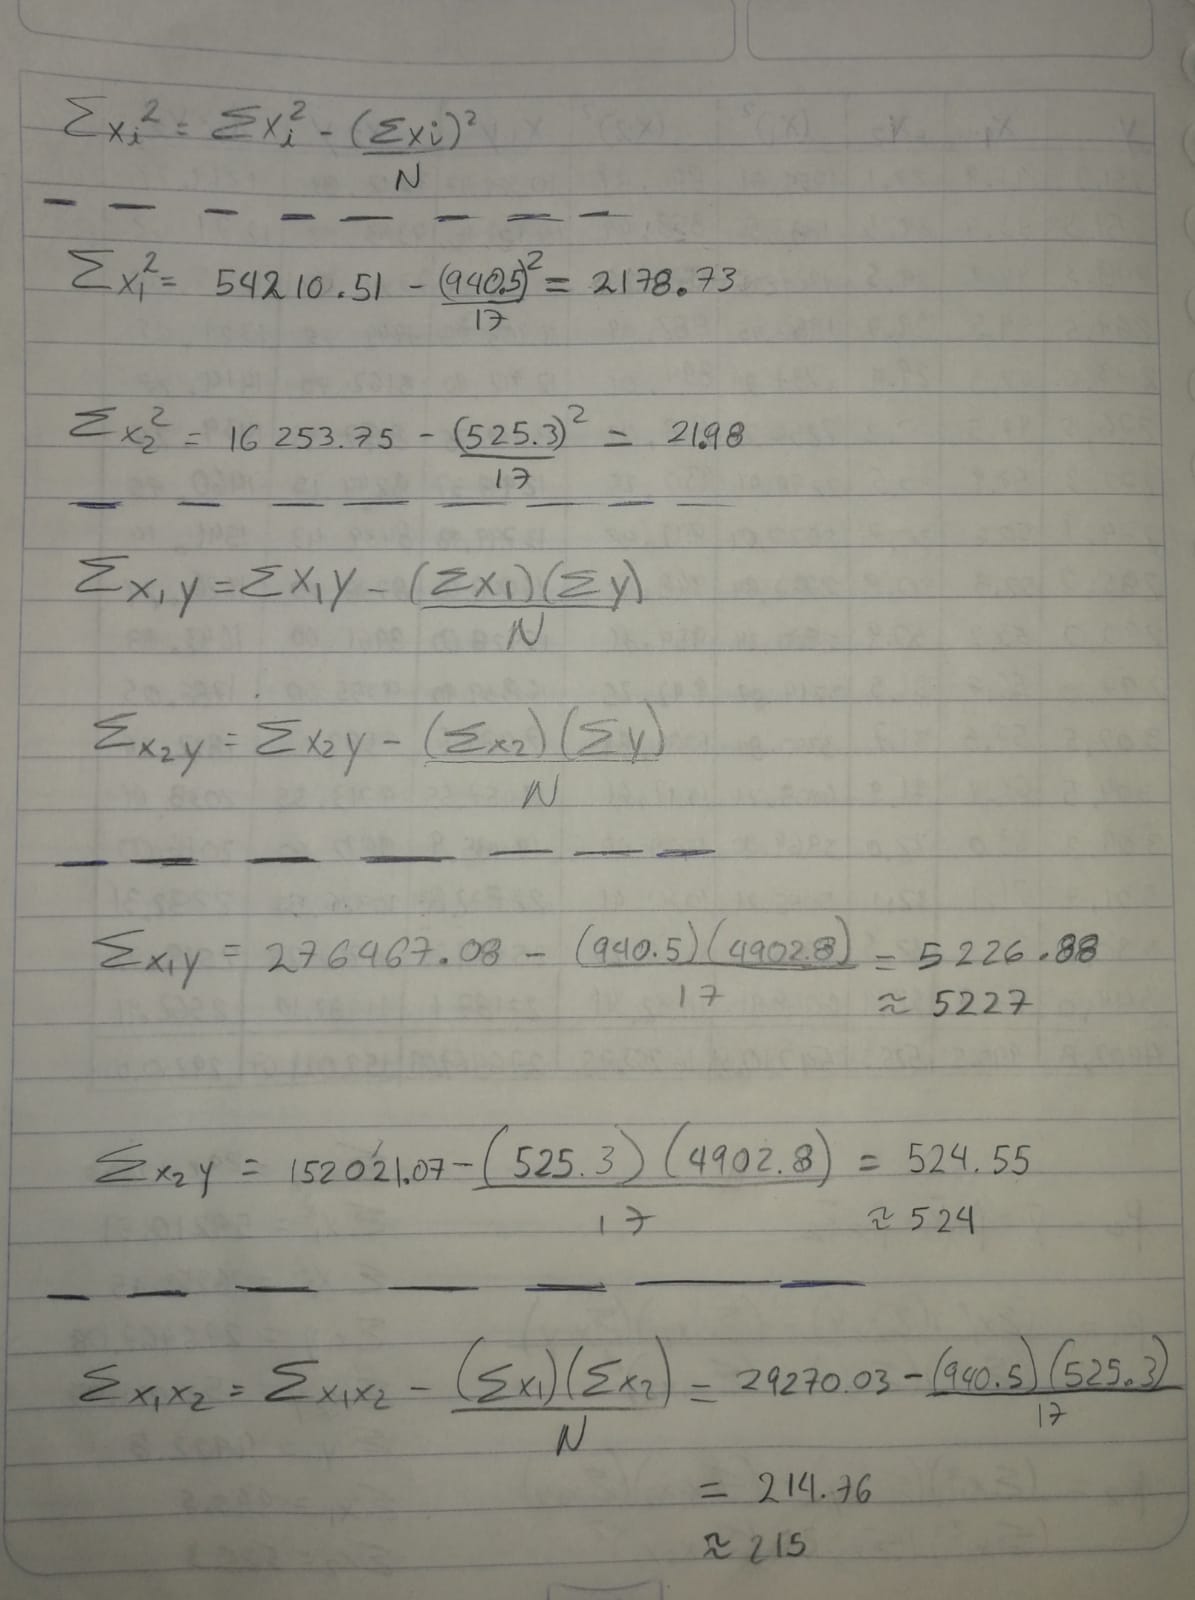 Σxi² = Σxi² - (Σxi)²
N
Σx1² = 54210.51 - (940.5)² = 2178.73
17
Σx2² = 16253.75 - (525.3)² = 21.98
17
Σx1y = Σx1y - (Σx1)(Σy)
N
Σx2y = Σx2y - (Σx2)(Σy)
N
Σx1y = 276467.08 - (940.5)(4902.8) = 5226.88
17 ≈ 5227
Σx2y = 152021.07 - (525.3)(4902.8) = 524.55
17 ≈ 524
Σx1x2 = Σx1x2 - (Σx1)(Σx2) = 29270.03 - (940.5)(525.3)
N 17
= 214.76
≈ 215